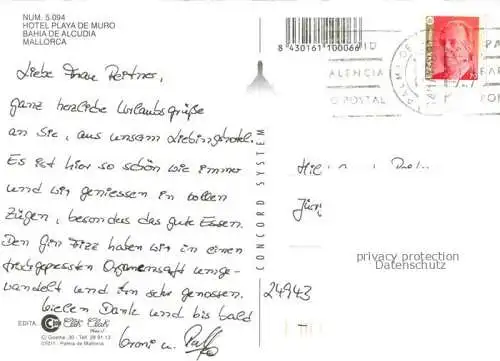 NUM. 5.094
HOTEL PLAYA DE MURO
BAHIA DE ALCUDIA
MALLORCA
8 430161 100066
Liebe Frau
ganz herzliche Urlaubsgrüße
an Sie, aus unserem Lieblingshotel.
Es ist hier so schön wie immer
und wir geniessen in vollen
Zügen, besonders das gute Essen.
Den Gin Fizz haben wir in einen
frischgepressten Orangensaft umge-
wandelt und ihn sehr genossen.
Vielen Dank und bis bald
u.
CONCORD SYSTEM
ALENCIA
POSTAL
PALMA DE
Hil
Jür
privacy protection
Datenschutz
24943
EDITA:
C/ Gremio, 30 - Telf. 29 91 13
07011 - Palma de Mallorca